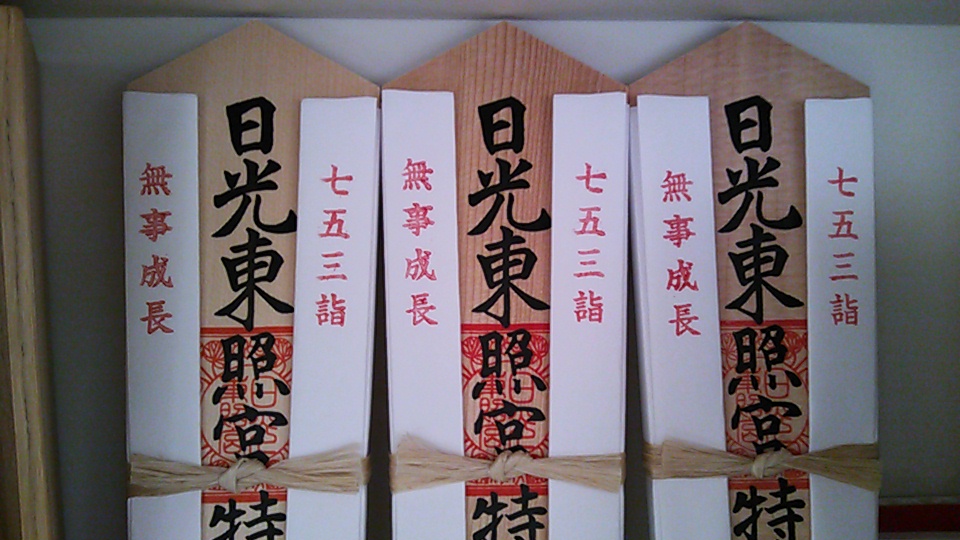 七五三詣
日光東照宮特
無事成長
七五三詣
日光東照宮特
無事成長
七五三詣
日光東照宮特
無事成長